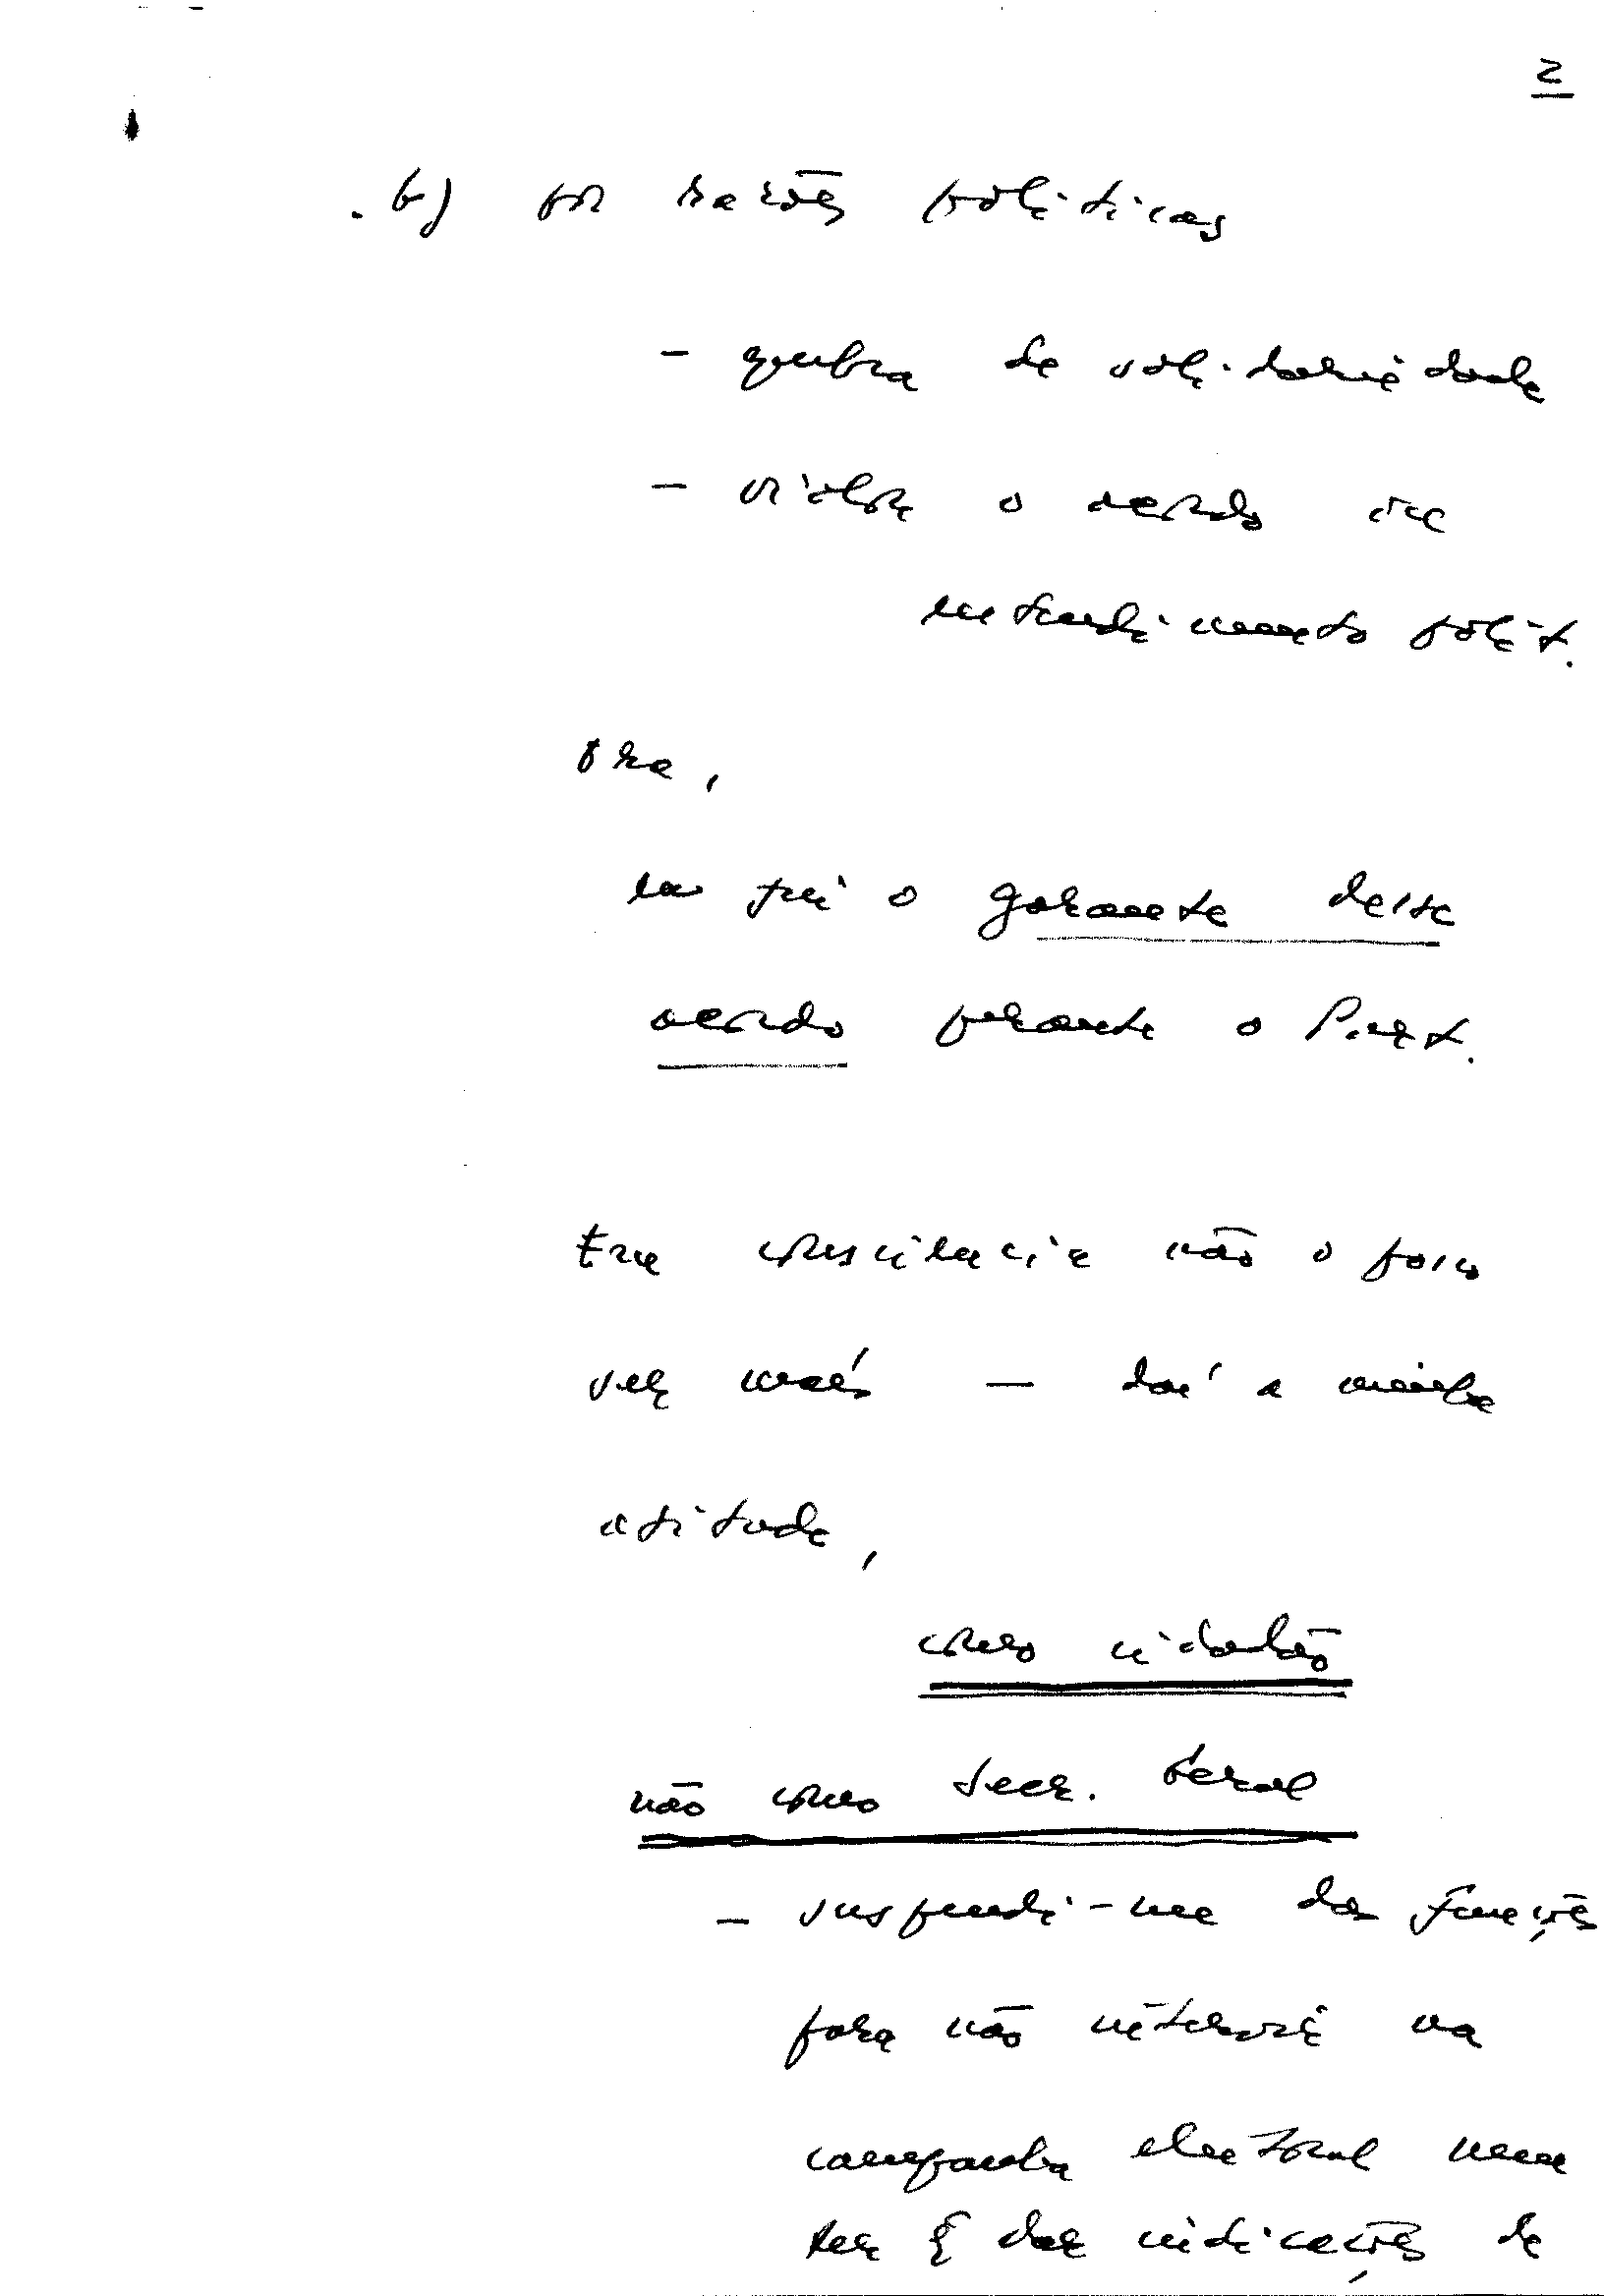 2
. b) por razões políticas
- quebra de solidariedade
- violar o acordo de
entendimento polít.
Ora,
eu fui o garante desse
acordo perante o P.
Em consciência não o posso
ser mais — daí a minha
atitude,
como cidadão
não como Secr. Geral
- suspendi-me das funções
para não intervir na
campanha eleitoral nem
ter q dar indicações de